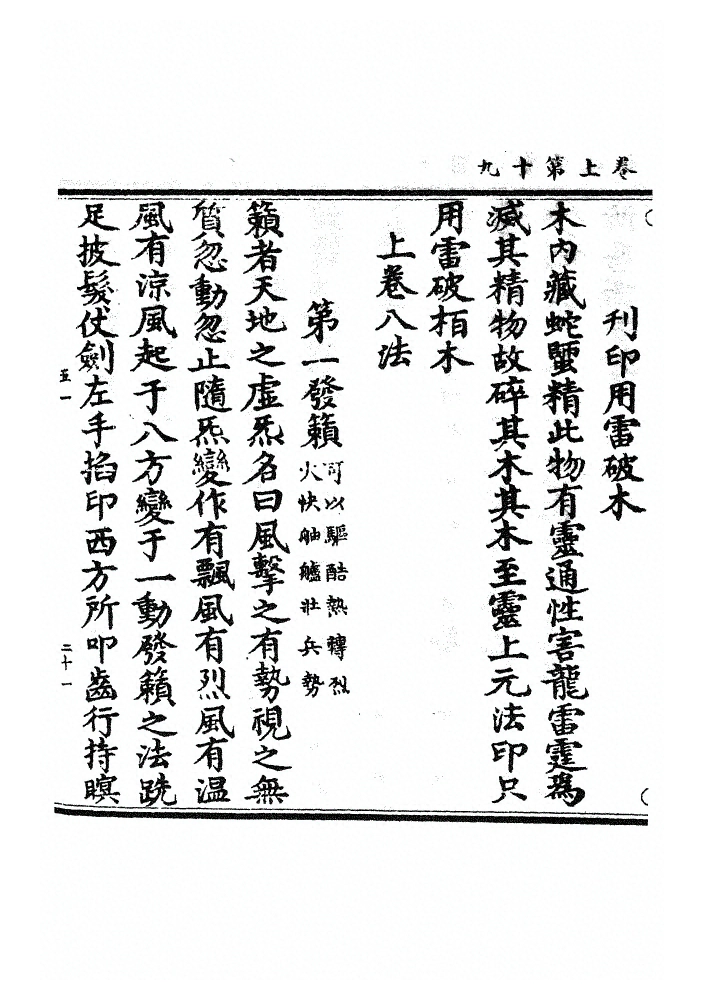 卷上第十九
刊印用雷破木
木內藏蛇蜃精此物有靈通性害龍雷霆為
滅其精物故碎其木其木至靈上元法印只
用雷破栢木
上卷八法
第一發籟
可以驅酷熱轉烈
火快舳艫壯兵勢
籟者天地之虛炁名曰風擊之有勢視之無
質忽動忽止隨炁變作有飄風有烈風有温
風有涼風起于八方變于一動發籟之法跣
足披髮仗劍左手掐印西方所叩齒行持瞑
五一
二十一